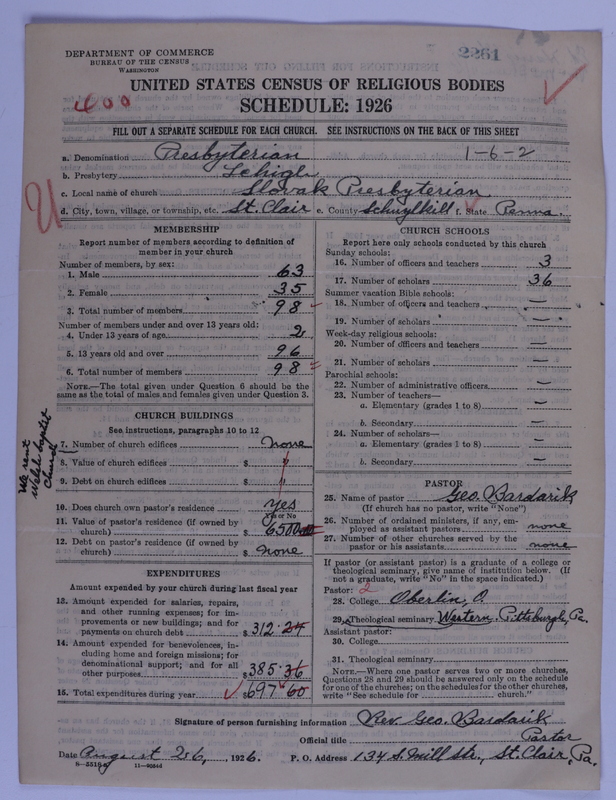 2261
DEPARTMENT OF COMMERCE
BUREAU OF THE CENSUS
WASHINGTON
UNITED STATES CENSUS OF RELIGIOUS BODIES
400
SCHEDULE: 1926
FILL OUT A SEPARATE SCHEDULE FOR EACH CHURCH. SEE INSTRUCTIONS ON THE BACK OF THIS SHEET
a. Denomination Presbyterian 1-6-2
b. Presbytery Lehigh
c. Local name of church Slovak Presbyterian
d. City, town, village, or township, etc. St. Clair e. County Schuylkill f. State Penna.
MEMBERSHIP
Report number of members according to definition of
member in your church
Number of members, by sex:
1. Male 63
2. Female 35
3. Total number of members 98
Number of members under and over 13 years old:
4. Under 13 years of age 2
5. 13 years old and over 96
6. Total number of members 98
NOTE.—The total given under Question 6 should be the
same as the total of males and females given under Question 3.
CHURCH BUILDINGS
See instructions, paragraphs 10 to 12
We rent
Welsh baptist
church
7. Number of church edifices none
8. Value of church edifices $ "
9. Debt on church edifices $ "
10. Does church own pastor's residence yes
Yes or No
11. Value of pastor's residence (if owned by
church) $ 6500
12. Debt on pastor's residence (if owned by
church) $ none
EXPENDITURES
Amount expended by your church during last fiscal year
13. Amount expended for salaries, repairs,
and other running expenses; for im-
provements or new buildings; and for
payments on church debt $ 312.24
14. Amount expended for benevolences, in-
cluding home and foreign missions; for
denominational support; and for all
other purposes $ 385.36
15. Total expenditures during year $ 697.60
CHURCH SCHOOLS
Report here only schools conducted by this church
Sunday schools:
16. Number of officers and teachers 3
17. Number of scholars 36
Summer vacation Bible schools:
18. Number of officers and teachers —
19. Number of scholars —
Week-day religious schools:
20. Number of officers and teachers —
21. Number of scholars —
Parochial schools:
22. Number of administrative officers —
23. Number of teachers—
a. Elementary (grades 1 to 8) —
b. Secondary —
24. Number of scholars—
a. Elementary (grades 1 to 8) —
b. Secondary —
PASTOR
25. Name of pastor Geo. Bardarik
(If church has no pastor, write "None")
26. Number of ordained ministers, if any, em-
ployed as assistant pastors none
27. Number of other churches served by the
pastor or his assistants none
If pastor (or assistant pastor) is a graduate of a college or
theological seminary, give name of institution below. (If
not a graduate, write "No" in the space indicated.)
Pastor: 2
28. College Oberlin, O.
29. Theological seminary Western. Pittsburgh, Pa.
Assistant pastor:
30. College
31. Theological seminary
NOTE.—Where one pastor serves two or more churches,
Questions 28 and 29 should be answered only on the schedule
for one of the churches; on the schedules for the other churches,
write "See schedule for church."
Signature of person furnishing information Rev. Geo. Bardarik
Official title Pastor
Date August 26, , 1926. P. O. Address 134 S. Mill str., St. Clair, Pa.